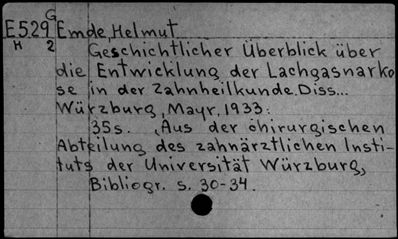 G
E529 Emde, Helmut
H 2 Geschichtlicher Überblick über
die Entwicklung der Lachgasnarko
se in der Zahnheilkunde. Diss...
Würzburg, Mayr, 1933.
35s. , Aus der chirurgischen
Abteilung des zahnärztlichen Insti-
tuts der Universität Würzburg,
Bibliogr. s. 30-34.